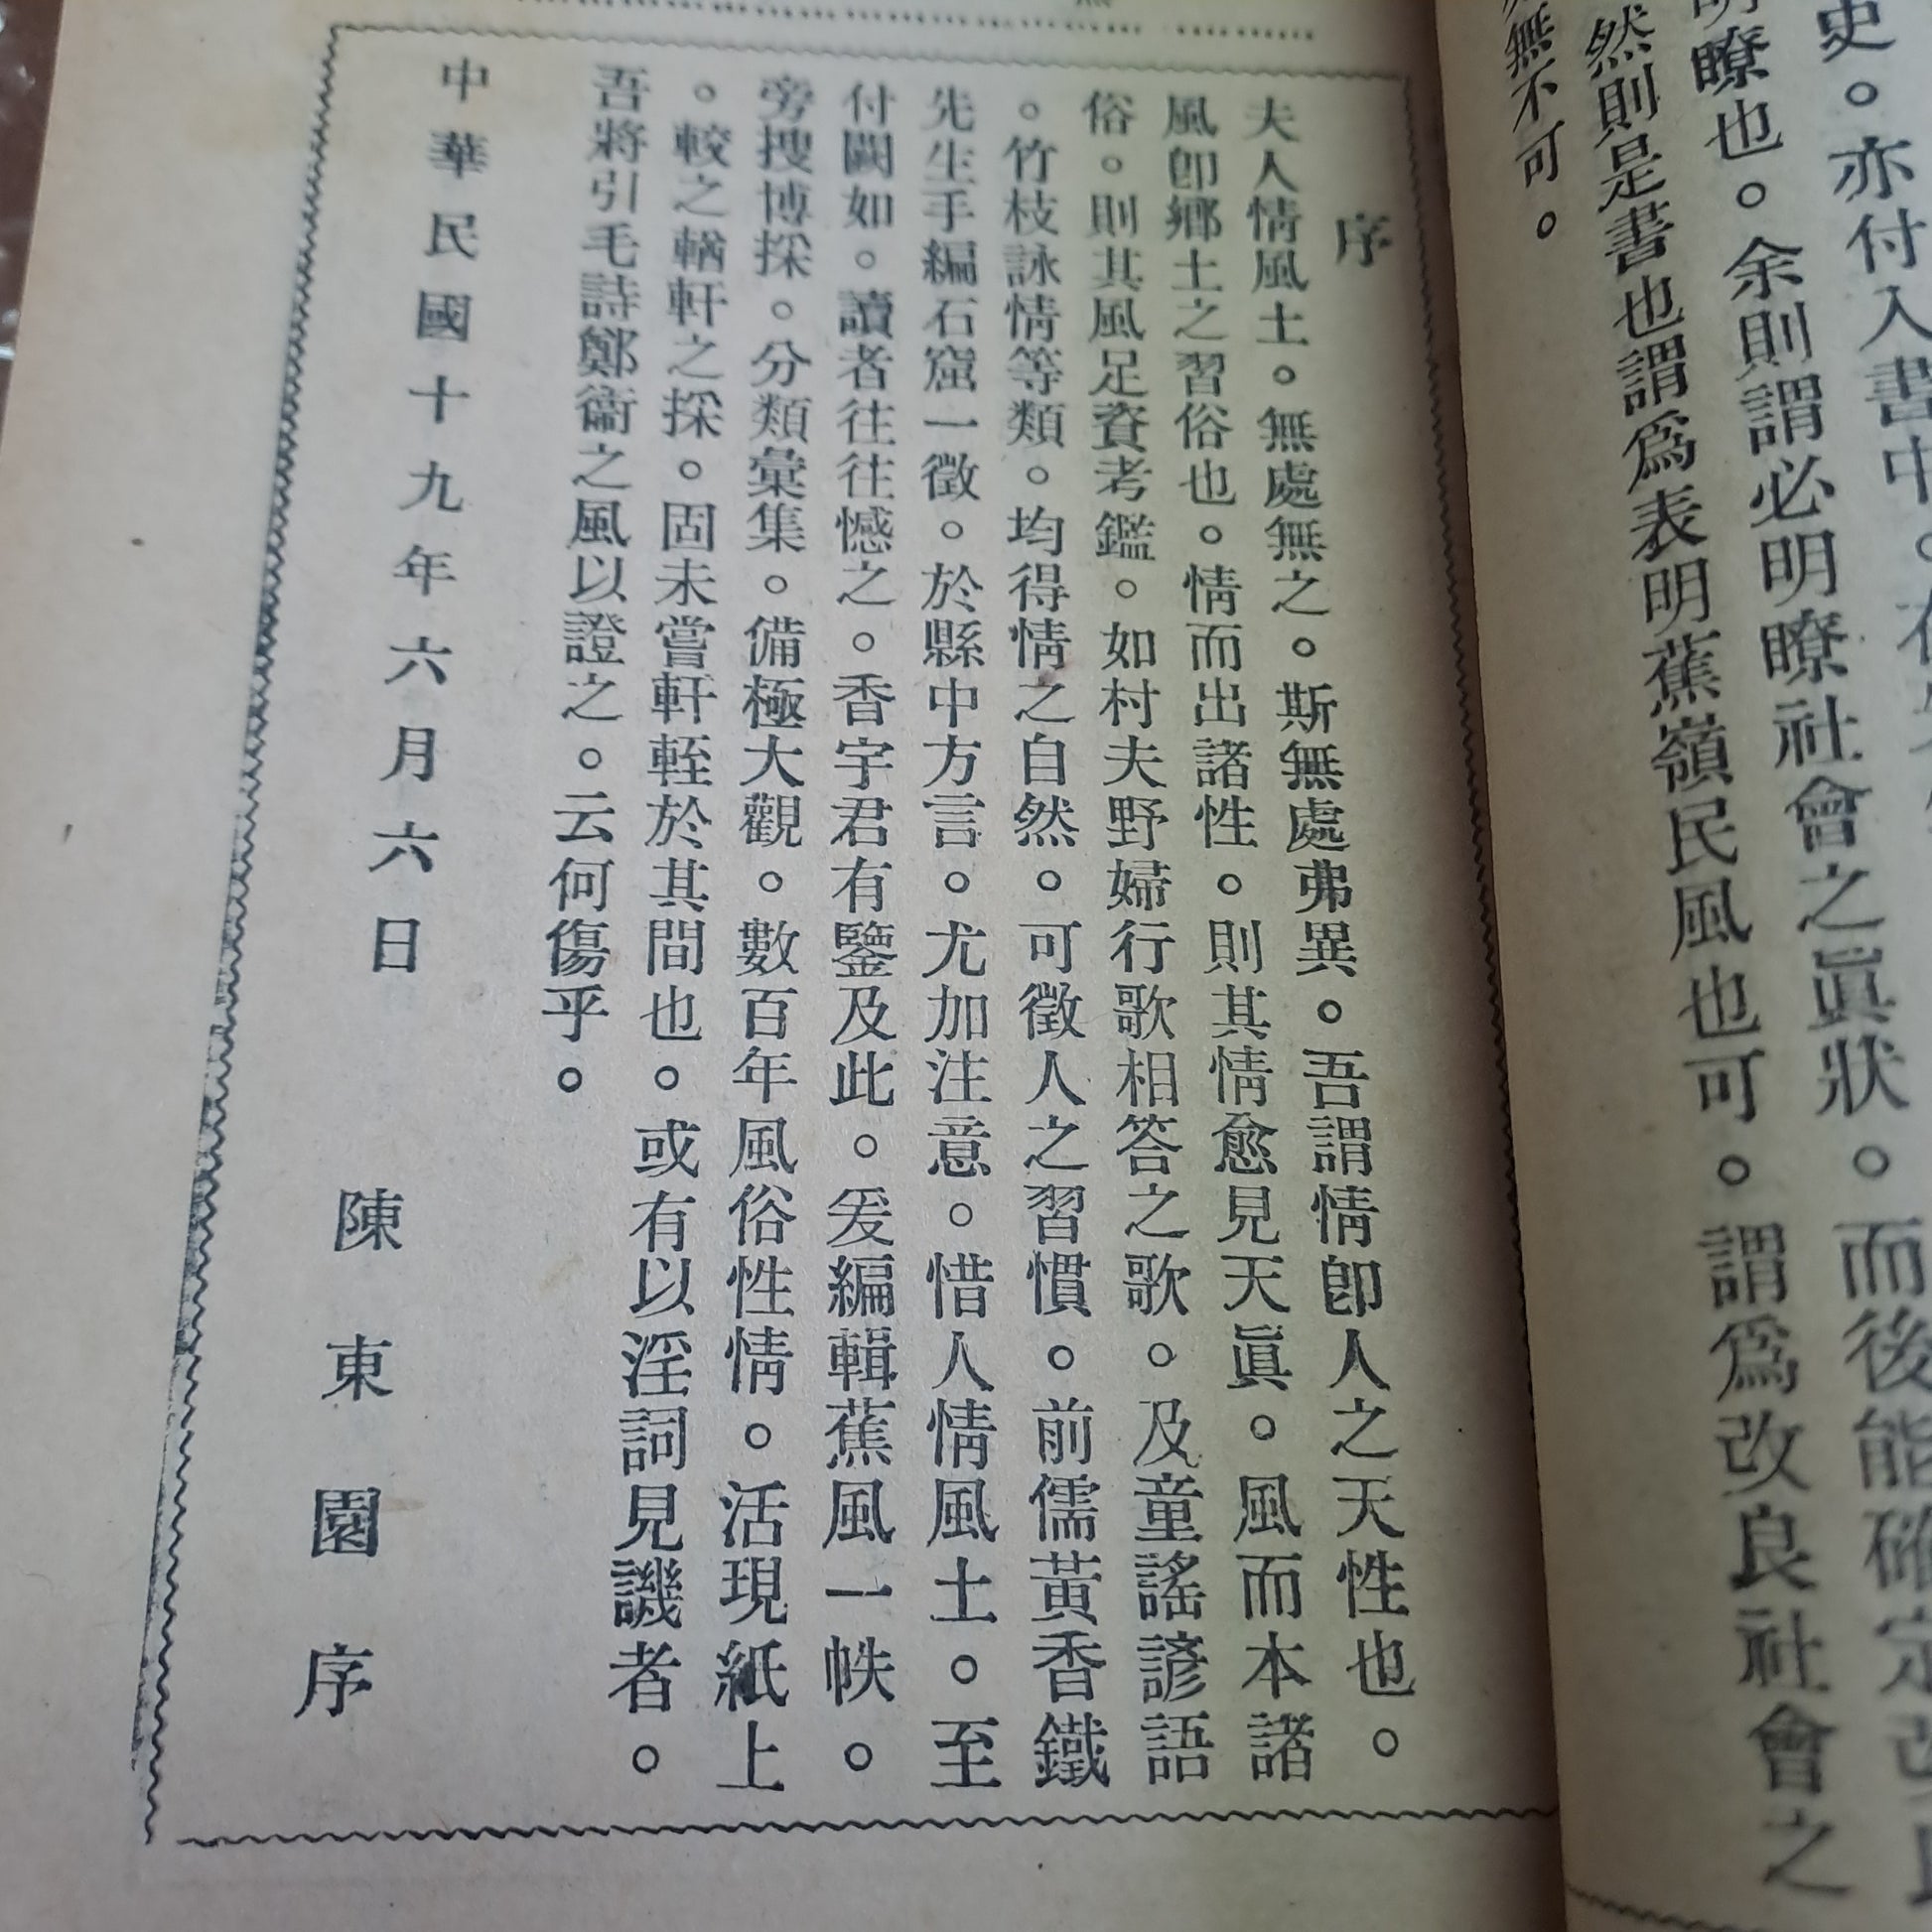 史。亦付入書中。
明瞭也。余則謂必明瞭社會之眞狀。而後能確定改
然則是書也謂爲表明蕉嶺民風也可。謂爲改良社會之
無不可。
序
夫人情風土。無處無之。斯無處弗異。吾謂情卽人之天性也。
風卽鄉土之習俗也。情而出諸性。則其情愈見天眞。風而本諸
俗。則其風足資考鑑。如村夫野婦行歌相答之歌。及童謠諺語
。竹枝詠情等類。均得情之自然。可徵人之習慣。前儒黃香鐵
先生手編石窟一徵。於縣中方言。尤加注意。惜人情風土。至
付闕如。讀者往往憾之。香宇君有鑒及此。爰編輯蕉風一帙。
旁搜博採。分類彙集。備極大觀。數百年風俗性情。活現紙上
。較之輶軒之採。固未嘗軒輊於其間也。或有以淫詞見譏者。
吾將引毛詩鄭衞之風以證之。云何傷乎。
中華民國十九年六月六日 陳東園序